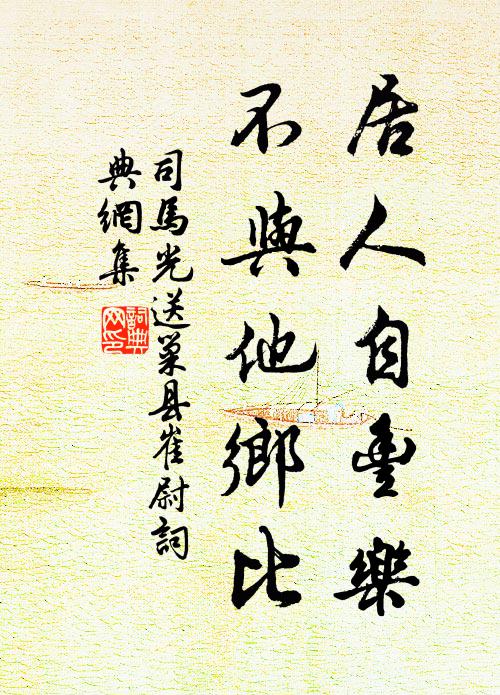 居人自豊樂
不與他鄉比
司馬光送巢县崔尉詞
典網集
詞典
网印